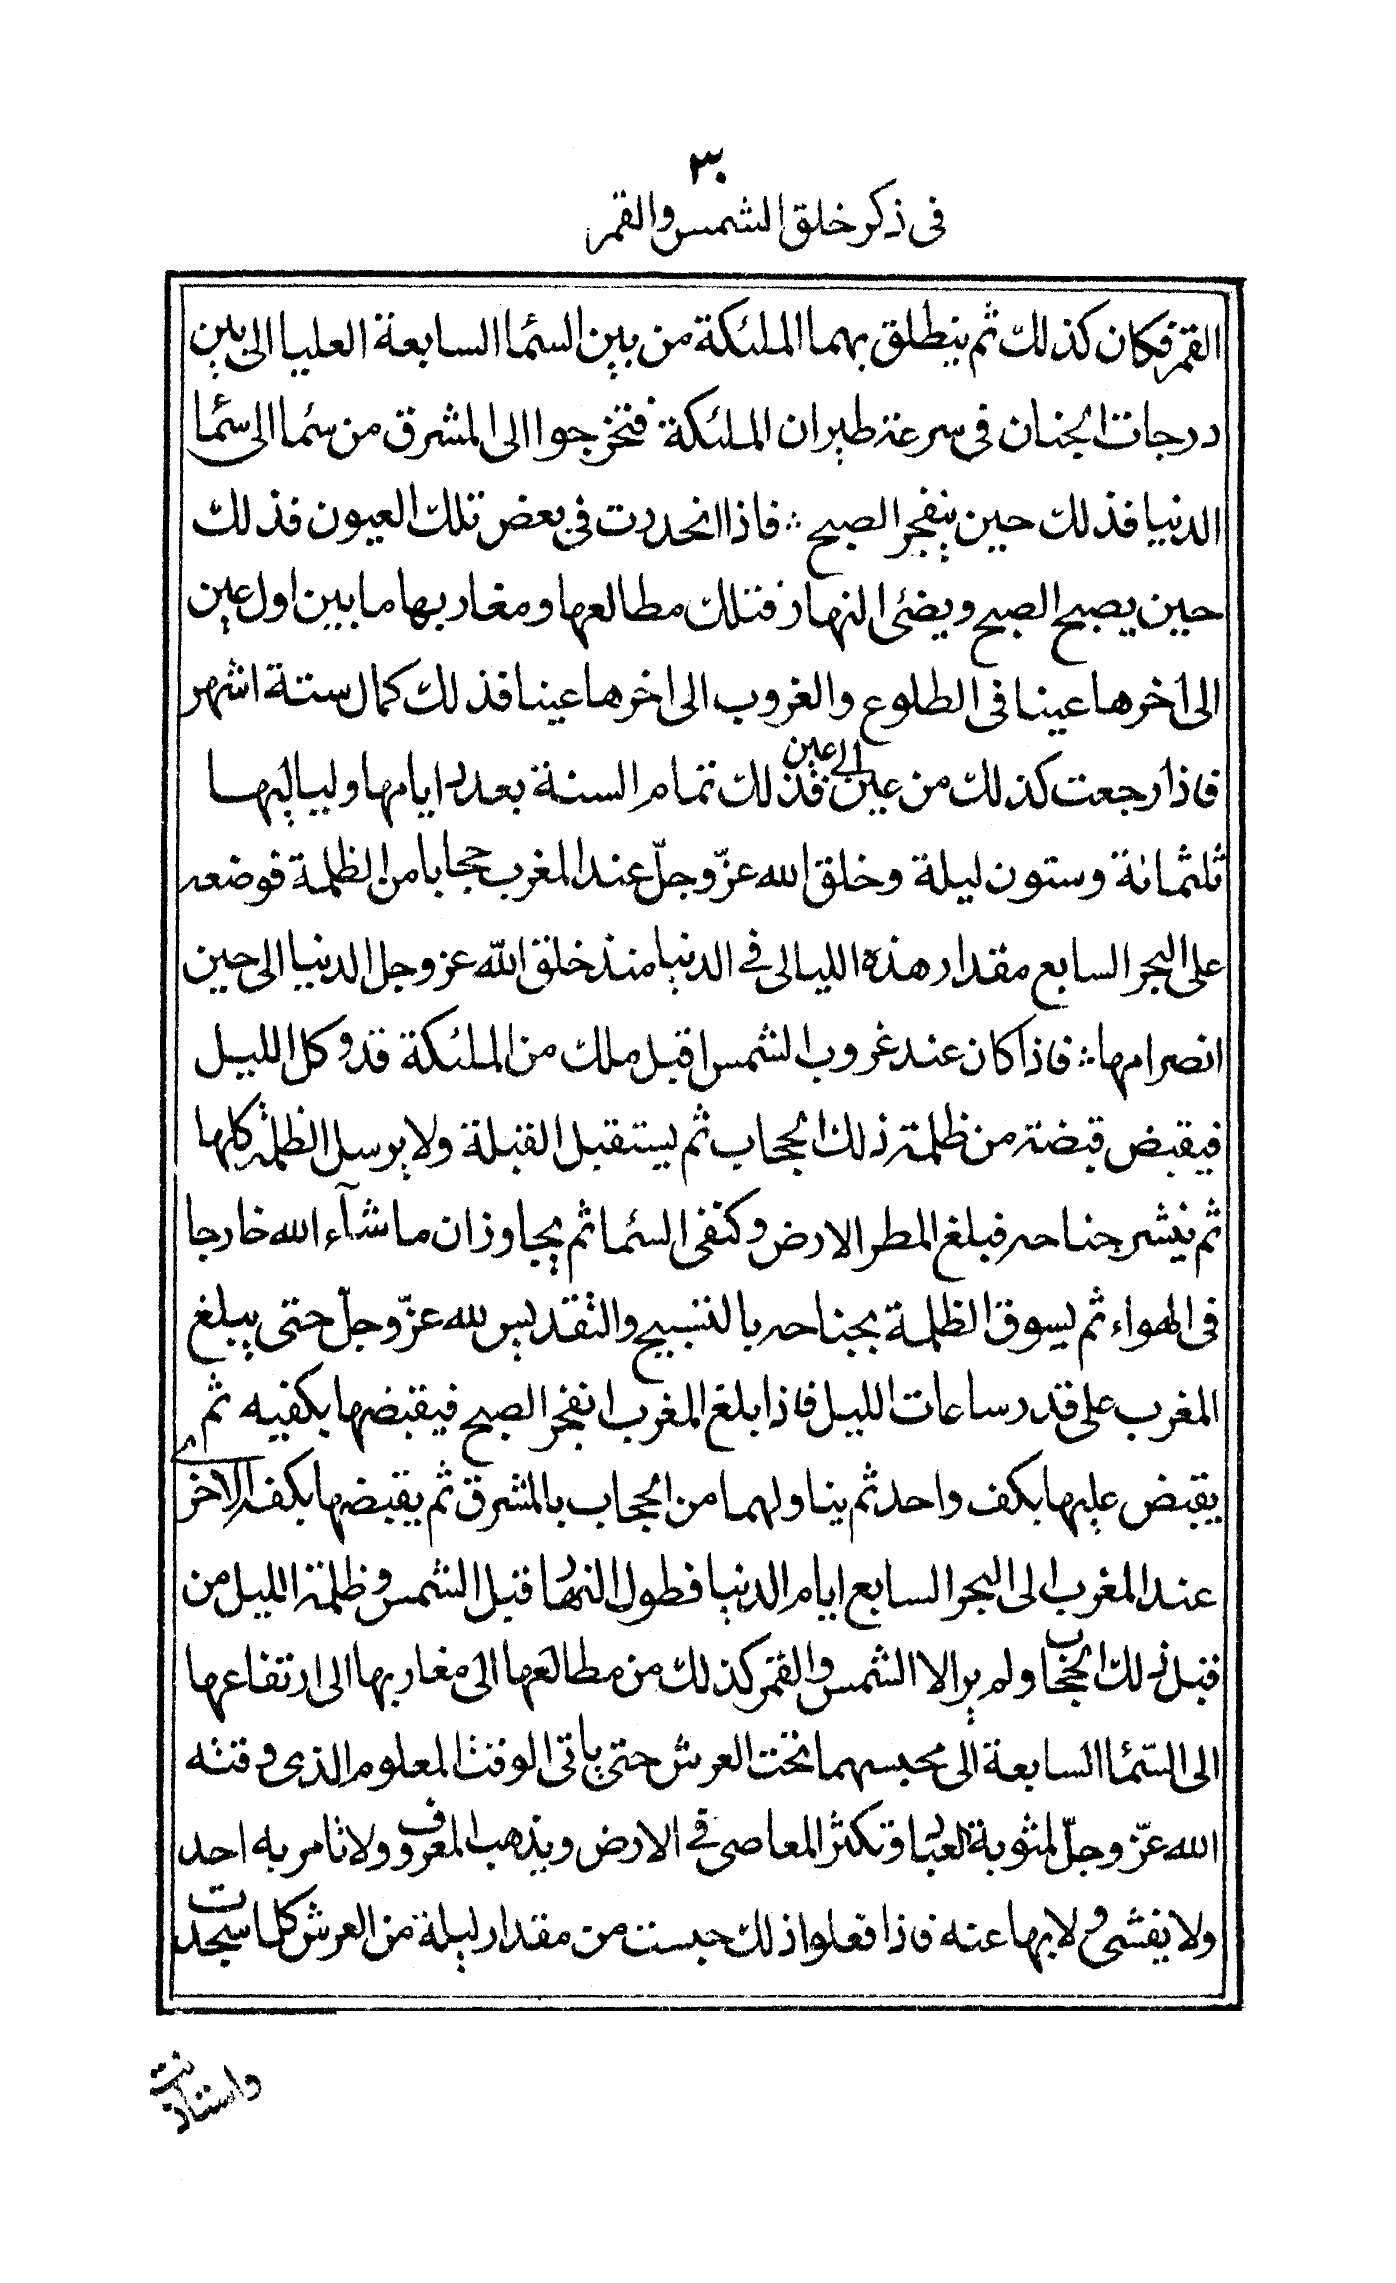 ٣٠
فى ذكر خلق الشمس والقمر
القمر فكان كذلك ثم ينطلق بهما الملئكة من بين السّما السابعة العليا الى بين
درجات الجنان فى سرعة طيران الملئكة فتخرجوا الى المشرق من سما الى سما
الدنيا فذلك حين ينفجر الصبح ∴ فاذا انحدرت فى بعض تلك العيون فذلك
حين يصبح الصبح ويضئى النهار فتلك مطالعها ومغاربها ما بين اول عين
الى اخرها عينا فى الطلوع والغروب الى اخرها عينا فذلك كمال ستة اشهر
فاذا رجعت كذلك من عين الى عين فذلك تمام السنة بعدد ايامها ولياليها
ثلثمائة وستون ليلة وخلق الله عزّ وجلّ عند المغرب حجابا من الظلمة فوضعه
على البحر السابع مقدار هذه الليالى فى الدنيا منذ خلق الله عز وجل الدنيا الى حين
انصرامها ∴ فاذا كان عند غروب الشمس اقبل ملك من الملئكة قد وكل الليل
فيقبض قبضة من ظلمة ذلك الحجاب ثم يستقبل القبلة ولا يرسل الظلمة كلها
ثم ينشر جناحه فبلغ المطر الارض وكنفى السما ثم يجاوز ان ما شآء الله خارجا
فى الهواء ثم يسوق الظلمة بجناحه بالتسبيح والتقديس لله عزّ وجلّ حتى يبلغ
المغرب على قدر ساعات الليل فاذا بلغ المغرب انفجر الصبح فيقبضها بكفيه ثم
يقبض عليها بكف واحد ثم يناولهما من الحجاب بالمشرق ثم يقبضها بكفه الاخرى
عند المغرب الى البحر السابع ايام الدنيا فطول النهار قبل الشمس وظلمة الليل من
قبل ذلك الحجاب ولم ير الا الشمس والقمر كذلك من مطالعها الى مغاربها الى ارتفاعها
الى السّما السابعة الى محبسهما تحت العرش حتى ياتى الوقت المعلوم الذى وقته
الله عزّ وجلّ لمثوبة العباد وتكثر المعاصى فى الارض ويذهب المعروف ولا تامر به احد
ولا يفشى ولا بها عنه فاذا فعلوا ذلك حبست من مقدار ليلة من العرش كلما سجدت
واستاذنت